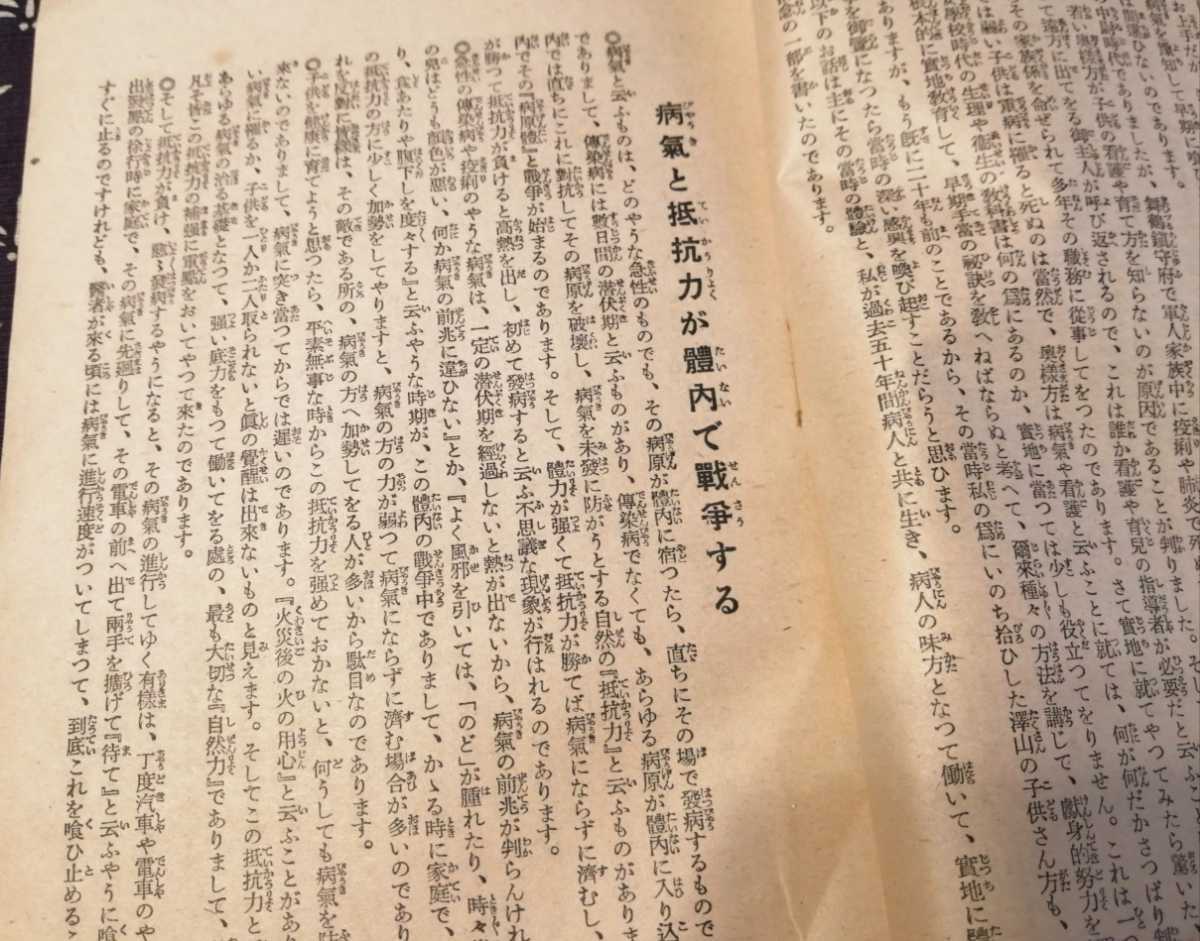 お上手が
病氣を豫知して早期
は間違ひないのであります。
の中學時代でありましたが、舞鶴鎭守府で軍人家族中に疫痢や肺炎で死ぬ
若い奥様方が子供の看護や育て方を知らないのが原因であることが判りました。そし
て遠方に出てをる御主人が呼び返されるので、これは誰か看護や育兒の指導者が必要だと云ふ
その家族係を命ぜられて多年その職務に從事してをつたのであります。さて實地に就てやつてみたら驚いた
では弱い子供は軍病に罹ると死ぬのは當然で、奥樣方は病氣や看護と云ふことに就ては、何が何だかさつぱり判
女學校時代の生理や衞生の教科書は何の爲にあるのか、實地に當つては少しも役立つてをりません。これは一つ
根本的に實地教育して、早期手當の祕訣を敎へねばならぬと考へて、爾來種々の方法を講じて、獻身的努力を
ありますが、もう既に二十年も前のことであるから、その當時私の爲にいのち拾ひした澤山の子供さん方も、
を御覽になつたら當時の深い感興を喚び起すことだらうと思ひます。
以下のお話は主にその當時の體驗と、私が過去五十年間病人と共に生き、病人の味方となつて働いて、實地に
念の一部を書いたのであります。
病氣と抵抗力が體內で戰爭する
◎病氣と云ふものは、どのやうな急性のものでも、その病原が體內に宿つたら、直ちにその場で發病するもので
でありまして、傳染病には數日間の潜伏期と云ふものがあり、傳染病でなくても、あらゆる病原が體內に入り込
內では直ちにこれに對抗してその病原を破壞し、病氣を未發に防がうとする自然の『抵抗力』と云ふものがありま
內でその『病原體』と戰爭が始まるのであります。そして、體力が强くて抵抗力が勝てば病氣にならずに濟むし、
が勝つて抵抗力が負けると高熱を出し、初めて發病すると云ふ不思議な現象が行はれるのであります。
◎急性の傳染病や疫痢のやうな病氣は、一定の潜伏期を經過しないと熱が出ないから、病氣の前兆が判らんけれ
の兒はどうも顏色が惡い、何か病氣の前兆に違ひない』とか、『よく風邪を引いては、「のど」が腫れたり、時々
り、食あたりや腹下しを度々する』と云ふやうな時期が、この體內の戰爭中でありまして、かゝる時に家庭で、
の抵抗力の方に少しく加勢をしてやりますと、病氣の方の力が弱つて病氣にならずに濟む場合が多いのであり
れを反對に皆樣は、その敵である所の、病氣の方へ加勢してをる人が多いから駄目なのであります。
◎子供を健康に育てようと思つたら、平素無事な時からこの抵抗力を强めておかないと、何うしても病氣を
來ないのでありまして、病氣に突き當つてからでは遲いのであります。『火災後の火の用心』と云ふことがあり
い病氣に罹るか、子供を一人か二人取られないと眞の覺醒は出來ないものと見えます。そしてこの抵抗力と
あらゆる病氣の治る基礎となつて、强い底力をもつて働いてをる處の、最も大切な『自然力』でありまして、
凡そ皆この抵抗力の補强に重點をおいてやつて來たのであります。
◎そして抵抗力が負け、愈々發病するやうになると、その病氣の進行してゆく有樣は、丁度汽車や電車のや
出發點の徐行時に家庭で、その病氣に先廻りして、その電車の前へ出て兩手を擴げて『待て』と云ふやうに喰
すぐに止るのですけれども、醫者が來る頃には病氣に進行速度がついてしまつて、到底これを喰ひ止めるこ